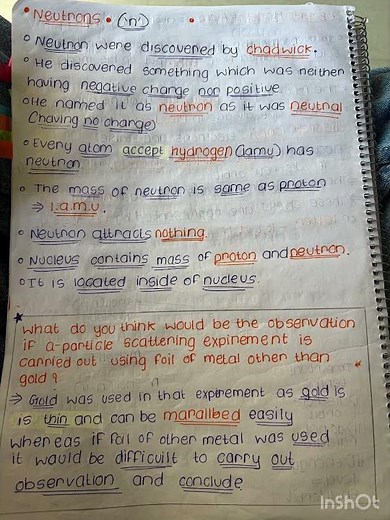 • Neutrons • ('n')
○ Neutron were discovered by chadwick.
○ He discovered something which was neither
having negative charge nor positive.
○ He named it as neutron as it was neutral
(having no change)
○ Every atom accept hydrogen (1amu) has
neutron
○ The mass of neutron is same as proton
⇒ 1.a.m.u.
○ Neutron attracts nothing.
○ Nucleus contains mass of proton and neutron.
○ It is located inside of nucleus.
★
what do you think would be the observation
if a-particle scattering expinement is
carried out using foil of metal other than
gold ?
⇒ Gold was used in that expirement as gold is
is thin and can be marallbed easily
whereas if foil of other metal was used
it would be difficult to carry out
observation and conclude.
InShOt